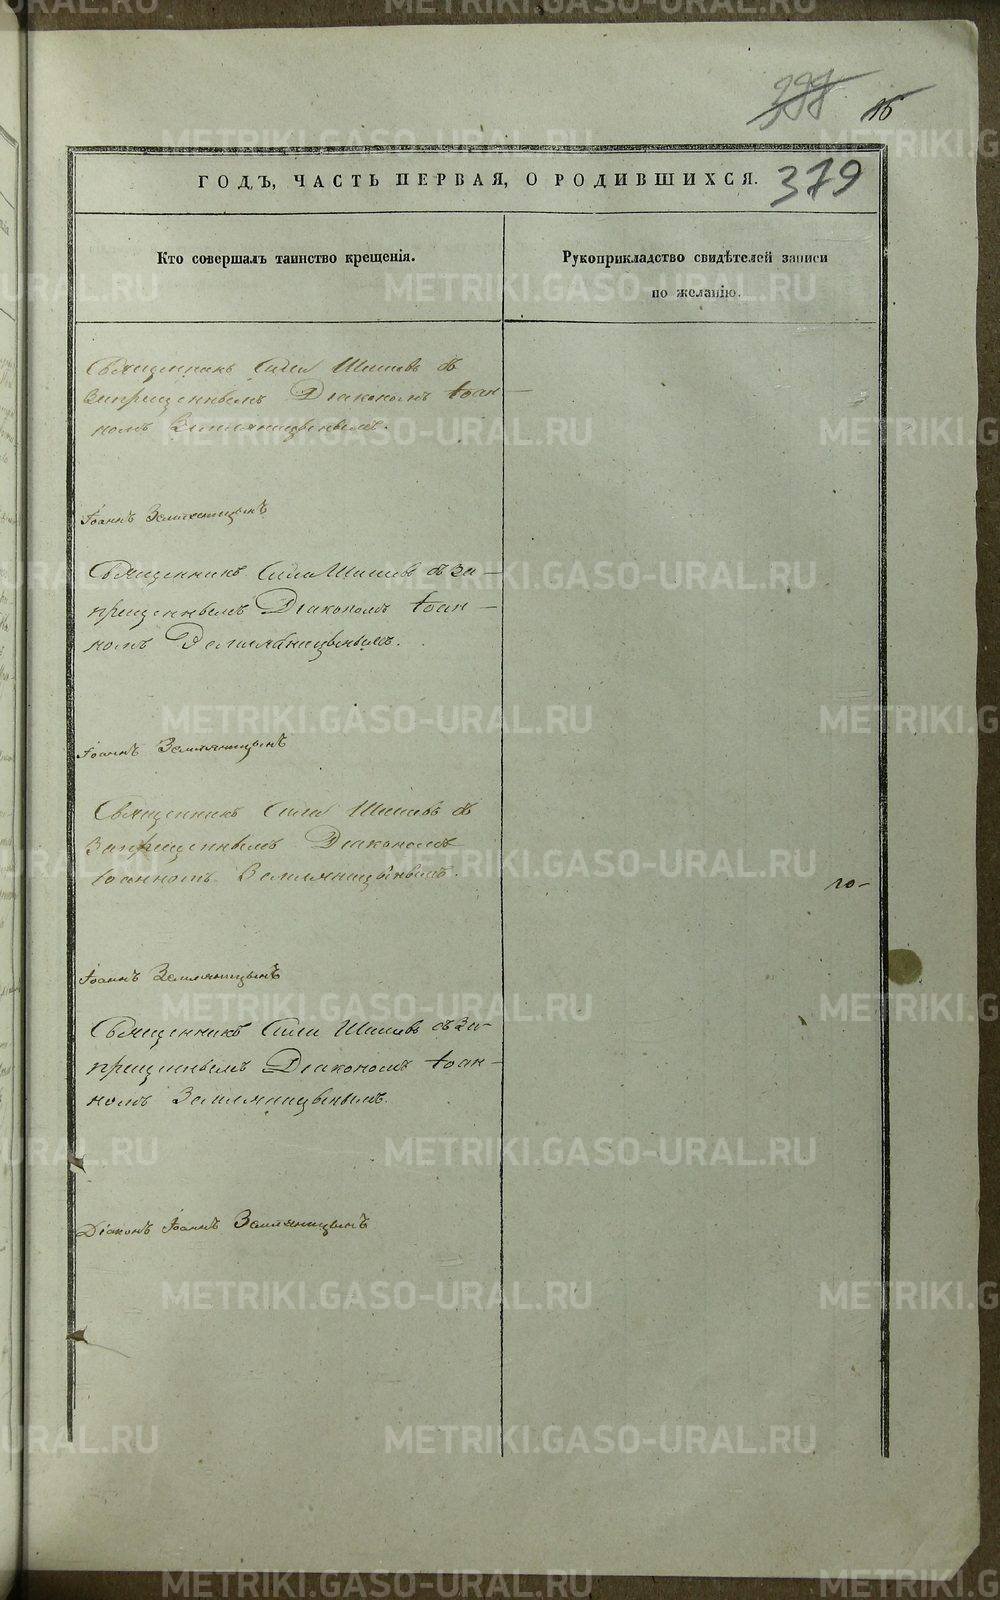 399 16
379
ГОДЪ, ЧАСТЬ ПЕРВАЯ, О РОДИВШИХСЯ.
Кто совершалъ таинство крещенія.
Рукоприкладство свидѣтелей записи
по желанію.
Священникъ Сила Шишевъ съ
запрещеннымъ Діакономъ Іоан-
номъ Земляницынымъ.
Іоаннъ Земляницынъ
Священникъ Сила Шишевъ съ за-
прещеннымъ Діакономъ Іоан-
номъ Земляницынымъ.
Іоаннъ Земляницынъ
Священникъ Сила Шишевъ съ
Запрещеннымъ Діакономъ
Іоанномъ Земляницынымъ.
го-
Іоаннъ Земляницынъ
Священникъ Сила Шишевъ съ за-
прещеннымъ Діакономъ Іоан-
номъ Земляницынымъ.
Діаконъ Іоаннъ Земляницынъ
METRIKI.GASO-URAL.RU